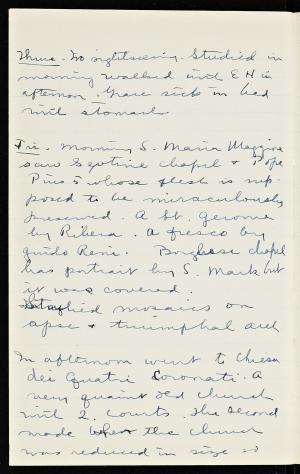 Thurs. No sightseeing. Studied in
morning walked with E H in
afternoon. Grace sick in bed
with stomach.
Fri. Morning S. Maria Maggiore
saw Sextine chapel + Pope
Pius 5 whose flesh is sup-
posed to be miraculously
preserved. A St. Gerome
by Ribera. A fresco by
Guido Reni. Borghese chapel
has portrait by S. Mark but
it was covered.
Studied mosaics on
apse + triumphal arch
In afternoon went to Chiesa
dei Quatri Coronati. A
very quaint old church
with 2 courts. The second
made when the church
was reduced in size so